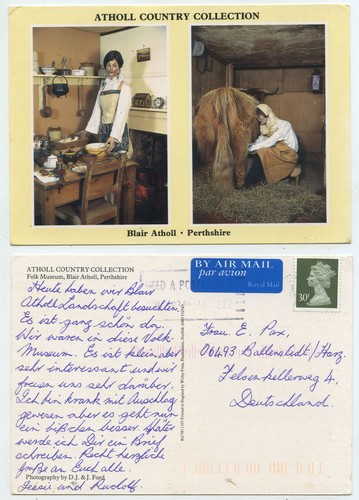 ATHOLL COUNTRY COLLECTION
Blair Atholl · Perthshire
ATHOLL COUNTRY COLLECTION
Folk Museum, Blair Atholl, Perthshire
Heute haben wir Blair
Atholl Landschaft besuchten.
Es ist ganz schön da.
Wir waren in diese Volk
Museum. Es ist klein aber
sehr interessant und wir
freuen uns sehr darüber.
Ich bin krank mit Auschlag
gewesen aber es geht nun
ein bißchen besser. Später
werde ich Dir ein Brief
schreiben. Recht herzliche
Größe an Euch alle.
Jessie und Rudolf.
Photography by D.J. & J. Ford
BY AIR MAIL
par avion
Royal Mail
30P
Frau. E. Pax,
06493 Ballenstedt/Harz.
Felsenkellerweg 4,
Deutschland.